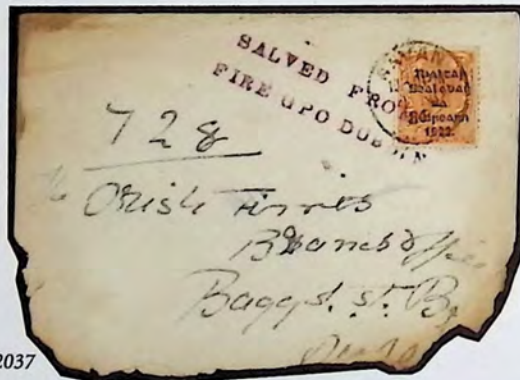 SALVED FROM
FIRE GPO DUBLIN
Rialtas
Sealadaċ
na
hÉireann
1922.
728
Irish Times
Branch Office
Baggot. st. Br
2037